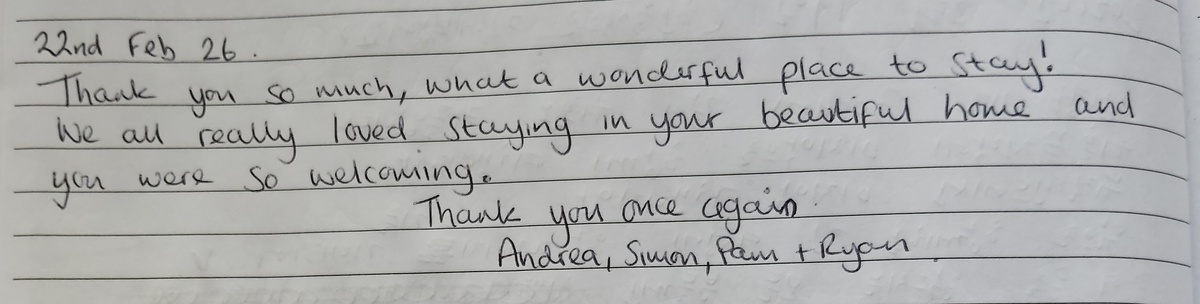 22nd Feb 26.
Thank you so much, what a wonderful place to stay!
We all really loved staying in your beautiful home and
you were so welcoming.
Thank you once again.
Andrea, Simon, Pam + Ryan.